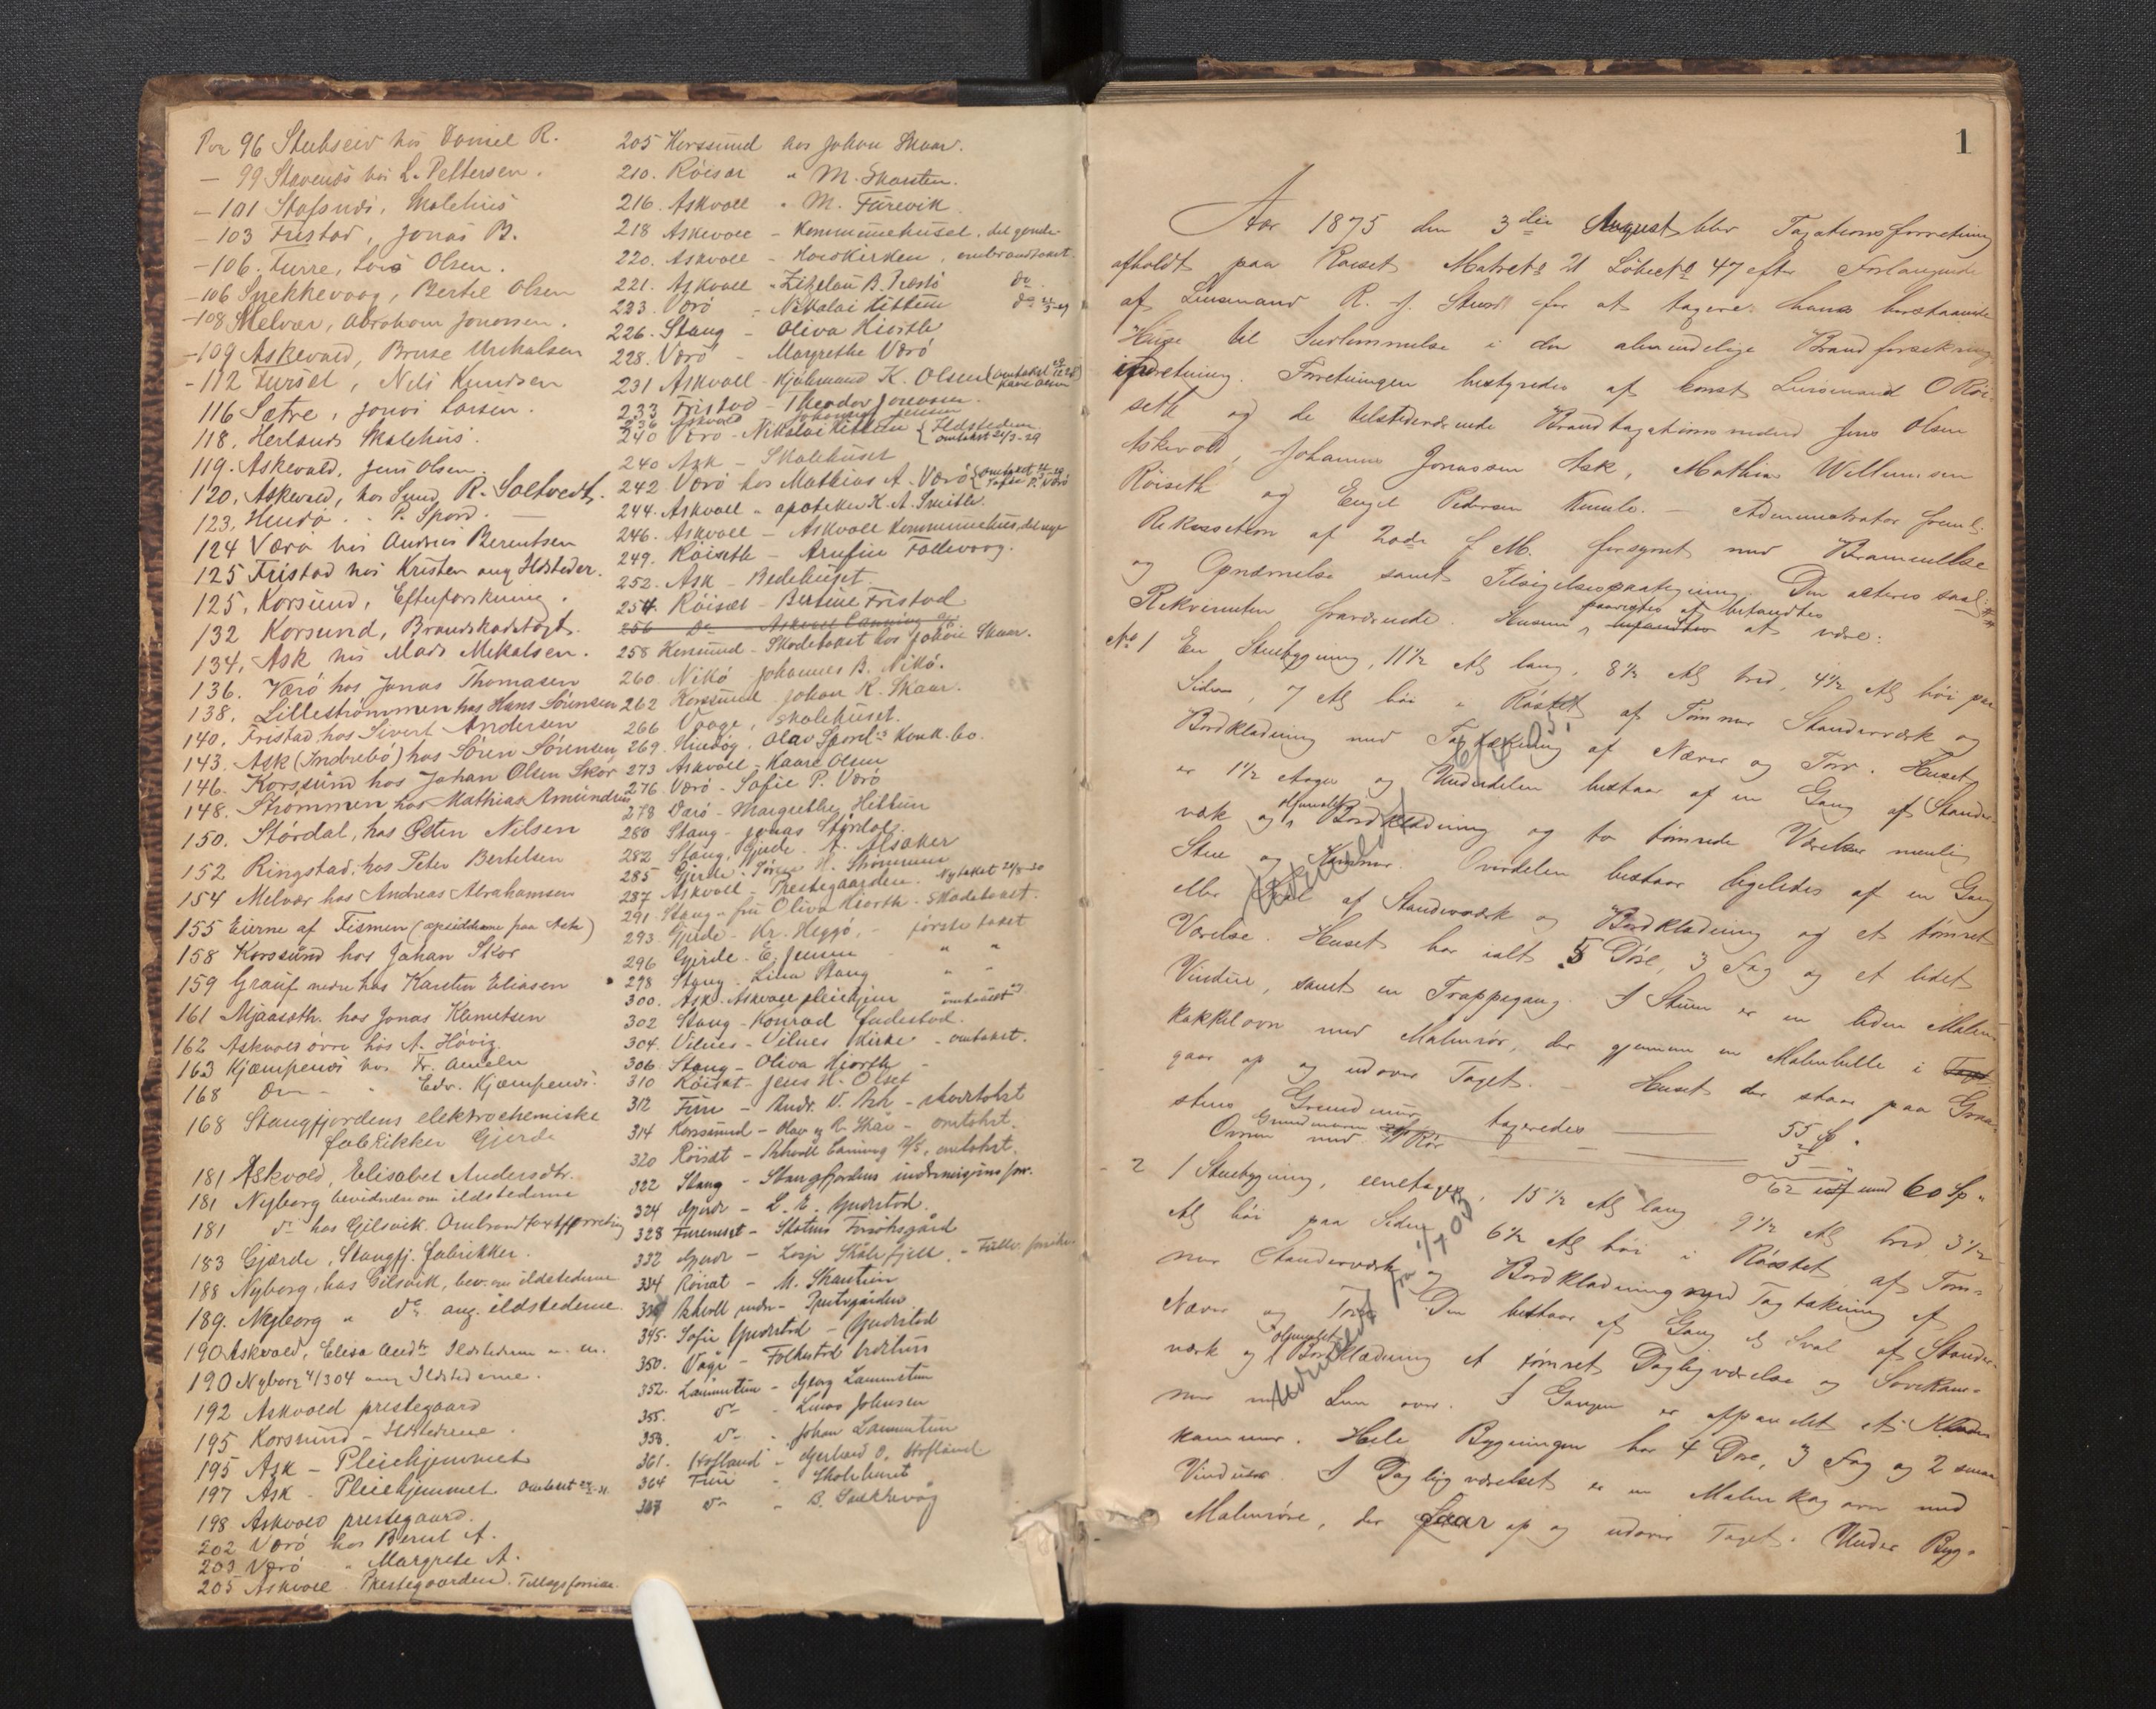 Pag 96 Stubseid hos Daniel R.
— 99 Stavenes hos L. Pettersen.
— 101 Stafsnes, Skolehus
— 103 Fristad, Jonas B.
— 106. Furre, Lois Olsen.
— 106 Snekkevaag, Bertel Olsen
— 108 Melvær, Abraham Jonassen.
— 109 Askevold, Bruse Mikalsen
— 112 Fursæt, Nels Knudsen
116 Sætre, Jonas Larsen.
118. Herland Skolehus.
119. Askevold, Jens Olsen.
120, Askevold, hos Lensmd R. Soltvedt.
123, Hindø. " P. Spord. —
124 Værø hos Andreas Berentsen
125 Fristad hos Kristen ang Ildsteder.
125, Korsund, Efterforskning.
132 Korsund, Brandskadetaxt.
134, Ask hos Mads Mikalsen.
136. Værø hos Jonas Thomasen
138. Lillestrømmen hos Hans Sørensen
140. Fristad hos Sivert Andersen
143. Ask (Indrebø) hos Søren Sørensen
146. Korssund hos Johan Olsen Skor
148. Strømmen hos Mathias Amundsen
150. Størdal, hos Østen Nilsen
152 Ringstad, hos Peter Bertelsen
154 Melvær hos Andreas Abrahamsen
155 Eierne af Tismen (opsiddherne paa Ask)
158 Korssund hos Johan Skor
159 Grauf nedre hos Karsten Eliasen
161 Mjaaseth. hos Jonas Klemetsen
162 Askvold øvre hos A. Høvig
163 Kjæmpenes hos Fr. Ameln
168 Do — " Edv. Kjæmpenes.
168 Stangfjordens elektrochemiske
fabrikker Gjerde
181 Askvold, Elisabet Andersdtr.
181 Nyborg bevidnelse om ildstederne
181 do hos Gilsvik. Ombrandtaxtforretning
183 Gjærde, Stangfj. fabrikker.
188 Nyborg, hos Gilsvik, bev. om ildstederne
189. Nyborg " do ang. ildstederne
190 Askvold, Elisa Andtr Ildstederne m. m.
190 Nyborg 41304 ang Ildstederne.
192 Askvold prestegaard
195 Korssund – Ildstederne.
195 Ask – Pleiehjemmet
197 Ask – Pleiehjemmet Omtaxt
198 Askvold prestegaard.
202 Værø hos Bernt A.
203 Værø " Margrete A.
205 Askvoll. Prestegaarden. Tillægsforret.
205 Korssund hos Johan Skaar.
210. Røisæt " M. Skarsten.
216. Askvoll " M. Furevik
218 Askevoll – Kommunehuset, det gamle
220. Askvoll – Hovedkirken, ombrandtaxt
221. Askvoll – Zitzelau B. Præstø do.
223. Værø – Nikolai Hittun do
226. Stang – Oliva Hiorth
228. Værø – Margrethe Værø
231 Askvoll – Hjulmand K. Olsen (omtakst Kaare Olsen
233 Fristad – Theodor Jonassen.
236 Askvold Johannes Jensen
240 Værø – Nikolai Hittun { Ildstedene omtakst 21/3-29
240 Ask – Skolehuset
242 Værø hos Mathias A. Værø { omtakst Sofie P. Værø
244. Askvoll " apoteker K. A. Smith.
246. Askvoll – Askvoll Kommunehus, det nye
249. Røiseth – Arnfin Follevaag.
252. Ask – Bedehuset.
254. Røisæt – Bertine Fristad
256 Do – Askvoll Canning A/S.
258 Korssund – Skadetakst hos Johan Skaar.
260. Nikø Johannes B. Nikø.
262 Korssund Johan R. Skaar.
266 Vaage, Skolehuset.
269. Hindøy. Olav Spords Konk.bo.
273 Askvoll – Kaare Olsen
276. Værø – Sofie P. Værø
278 Værø – Margrethe Hittun
280 Stang – Jonas Størdal.
282 Stang, Gjerde. A. Alsaker
285 Gjerde – Sören H. Strømmen
287 Askvoll – Prestegaarden. Nytakst 21/8-30
291 Stang – fru Oliva Hiorth – Skadetakst.
293. Gjerde – Kr. Heggø, – første takst
296 Gjerde – E. Jensen " "
298 Stang – Lina Stang " "
300. Ask. Askvoll pleiehjem omtakst
302 Stang – Konrad Endestad.
304. Vilnes – Vilnes Kirke – omtakst.
306 Stang – Oliva Hiorth –
310 Røisæt – Jens H. Olset
312 Fure – Andr. V. Ask – skadetakst
314 Korssund – Olav og R. Skår – omtakst.
320 Røisæt – Askvoll Canning A/S, omtakst.
322 Stang – Stangfjordens indremisjonsfor.
324 Gjerde – L. E. Gjerdstad.
328 Furenesset – Statens Forsøksgård
332 Gjerde – Losje Skålefjell –
334 Røisæt – M. Skarstein
Askvoll nedre – Prestegården
345. Sofie Gjerdstad – Gjerdstad
350. Våge – Folkestad Bedehus
352. Lammetun – Georg Lammetun
355. do – Lucas Johnsen
358. do " Johan Lammetun
361. Hofland – Gerhard O. Hofland
364 Fure " Skolehuset
367 do " B. Snekkevåg
1
Aar 1875 den 3die August blev Taxationsforretning
afholdt paa Røiset Matr No 21 Løbe No 47 efter Forlangende
af Lensmand R. J. Sture for at taxere hans havstaaende
Huse til Indlemmelse i den almindelige Brandforsikrings
indretning. Forretningen bestyredes af konst Lensmand O Røi-
seth og de tilstedeværende Brandtaxationsmænd Jens Olsen
Askevold, Johannes Jonassen Ask, Mathias Willumsen
Røiseth og Engel Pedersen Kumle. – Administrator freml.
Rekvisition af 20de f. M. forsynet med Berammelse
og Opnævnelse samt Tilsigelsespaategning. Den acteres saal:
Rekvirenten fraværende. Husene paavistes og befandtes at være:
No 1 En Stuebygning, 11½ Al lang, 8½ Al bred, 4½ Al høi paa
Siden, 7 Al høi i Røstet af Tømmer Standerværk og
Bordklædning med Tagtækning af Næver og Torv. Huset
er 1½ Etage og Underdelen bestaar af en Gang af Stander-
værk og oljemalet Bordklædning og to tømrede Værelser nemlig
Stue og Kammer. Overdelen bestaar ligeledes af en Gang
eller Sval af Standerværk og Bordklædning og et tømret
Værelse. Huset har ialt 5 Døre, 3 Fag og et lidet
Vindue, samt en Trappegang. I Stuen er en liden Malm-
kakkelovn med Malmrør, der gjennem en Malmhelle i Taget
gaar op og udover Taget. – Huset der staar paa Graa-
stens Grundmur taxeredes — 55 Sp.
Ovnen med Rør — 5 —
62 med 60 Sp "
2 1 Stuebygning, eenetages, 15½ Al lang 9½ Al bred, 3½
Al høi paa Siden 6½ Al høi i Røstet, af Tøm-
mer Standerværk og Bordklædning med Tagtækning af
Næver og Torv. Den bestaar af Gang og Sval af Stander-
værk og oljemalet Bordklædning et tømret Dagligværelse og Sovekam-
mer med Lem over. I Gangen er afpanelet et Klæde-
kammer. Hele Bygningen har 4 Døre, 3 Fag og 2 smaa
Vinduer. I Dagligværelset er en Malm Kogovn med
Malmrøre, der gaar op og udover Taget. Under Byg-